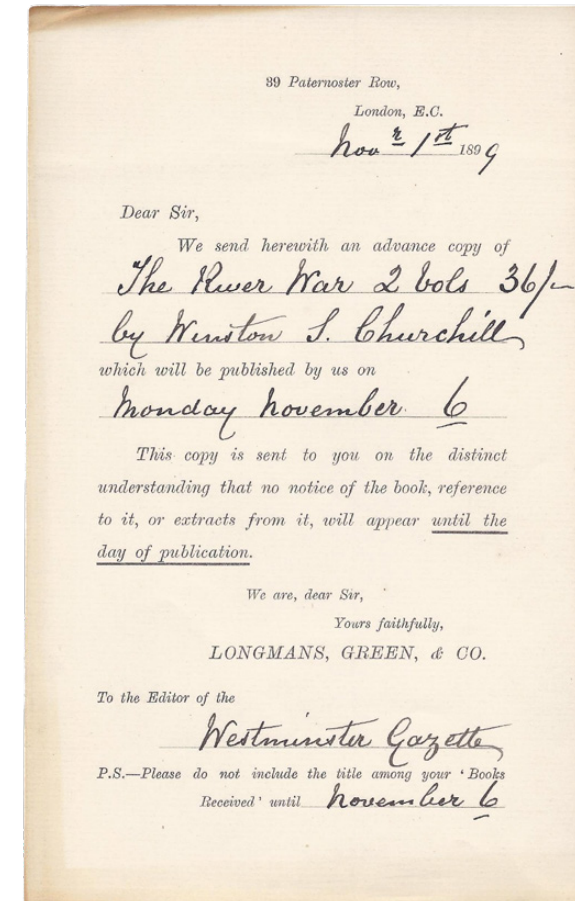 39 Paternoster Row,
London, E.C.
Nov r 1st 1899
Dear Sir,
We send herewith an advance copy of
The River War 2 Vols 36/-
by Winston S. Churchill
which will be published by us on
Monday November 6
This copy is sent to you on the distinct
understanding that no notice of the book, reference
to it, or extracts from it, will appear until the
day of publication.
We are, dear Sir,
Yours faithfully,
LONGMANS, GREEN, & CO.
To the Editor of the
Westminster Gazette
P.S.—Please do not include the title among your ‘Books
Received’ until November 6